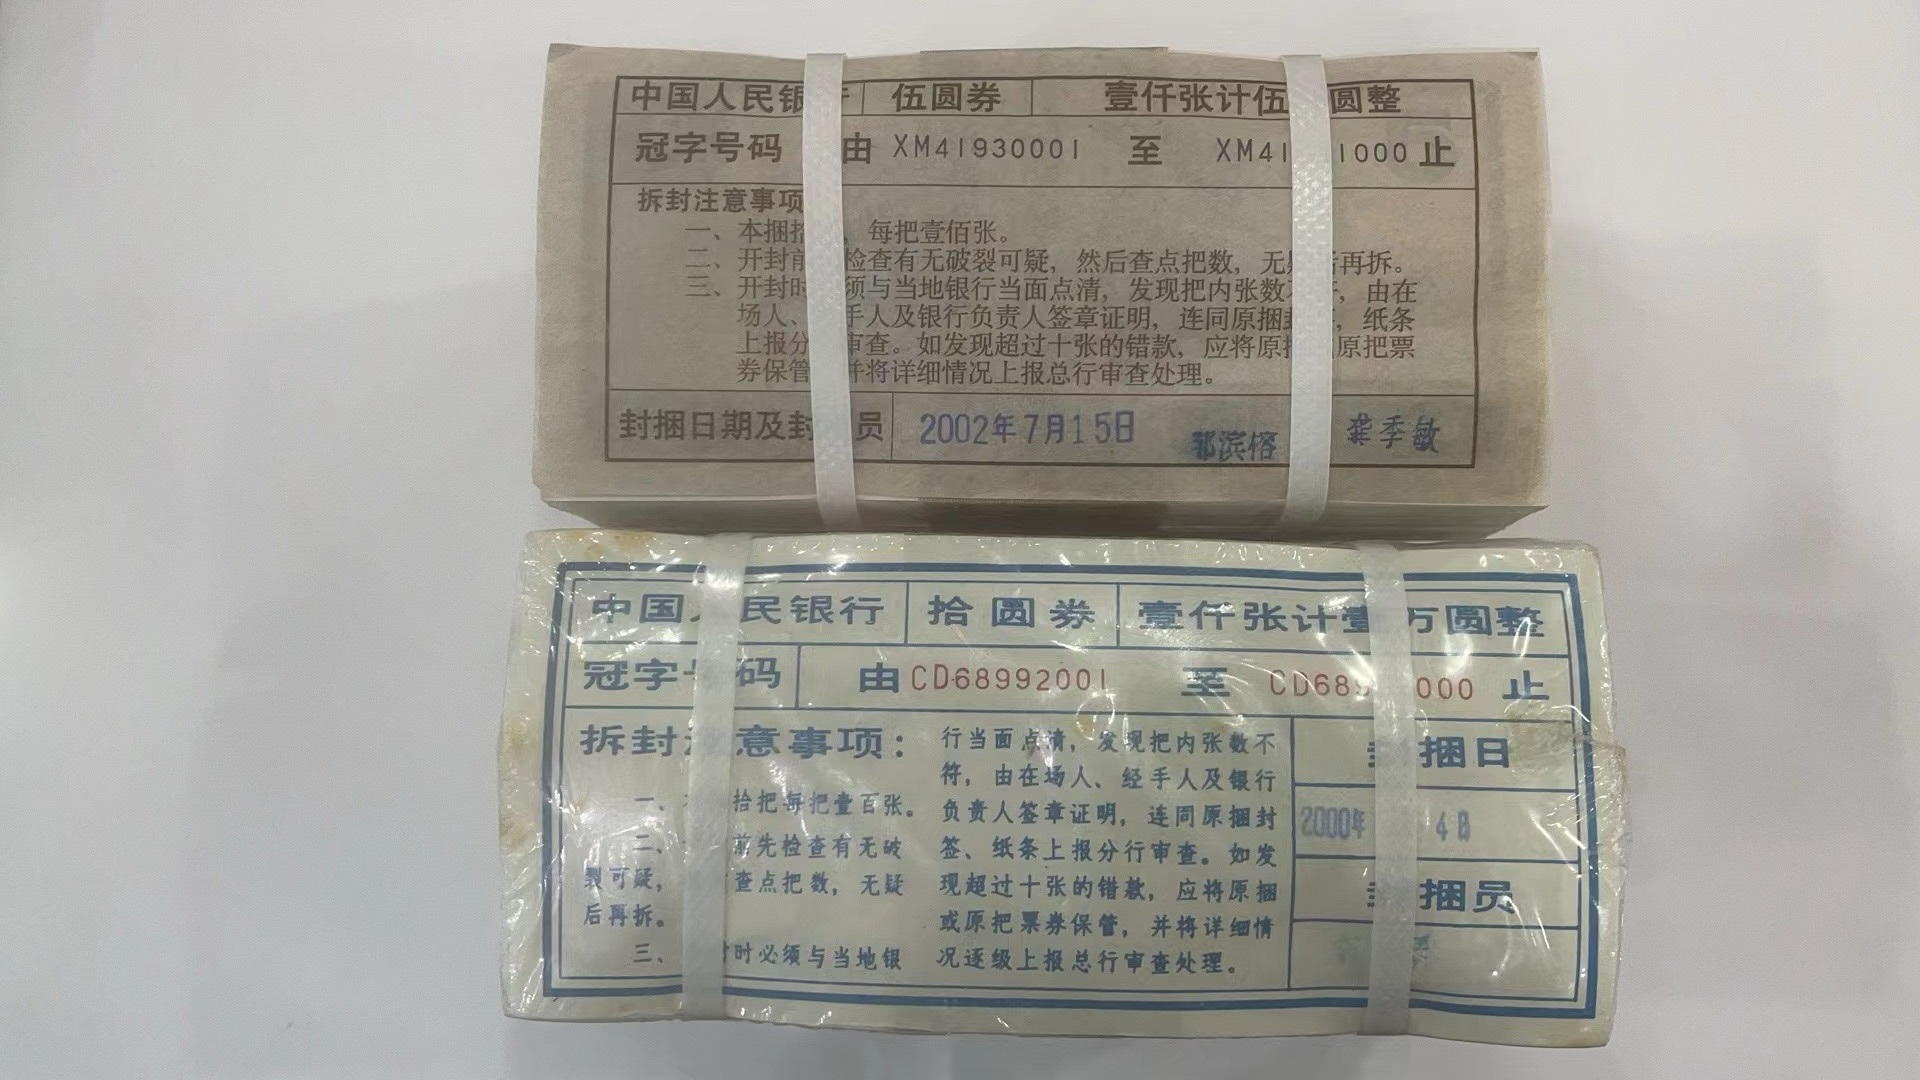 中国人民银 伍圆券 壹仟张计伍 圆整
冠字号码 由 XM41930001 至 XM41 1000 止
拆封注意事项
一、本捆 每把壹佰张。
二、开封前 检查有无破裂可疑，然后查点把数，无 后再拆。
三、开封时 须与当地银行当面点清，发现把内张数 ，由在
场人、 手人及银行负责人签章证明，连同原捆 ，纸条
上报分 审查。如发现超过十张的错款，应将原 原把票
券保管 并将详细情况上报总行审查处理。
封捆日期及封 员 2002年7月15日 滨榕 龚季敏
中国 民银行 拾圆券 壹仟张计壹万圆整
冠字号码 由 CD68992001 至 CD68 000 止
拆封 意事项：
一、 拾把每把壹百张。
二、 前先检查有无破
裂可疑， 查点把数，无疑
后再拆。
三、 时必须与当地银
行当面点清，发现把内张数不
符，由在场人、经手人及银行
负责人签章证明，连同原捆封
签、纸条上报分行审查。如发
现超过十张的错款，应将原捆
或原把票券保管，并将详细情
况逐级上报总行审查处理。
捆日
2000年 4日
捆员